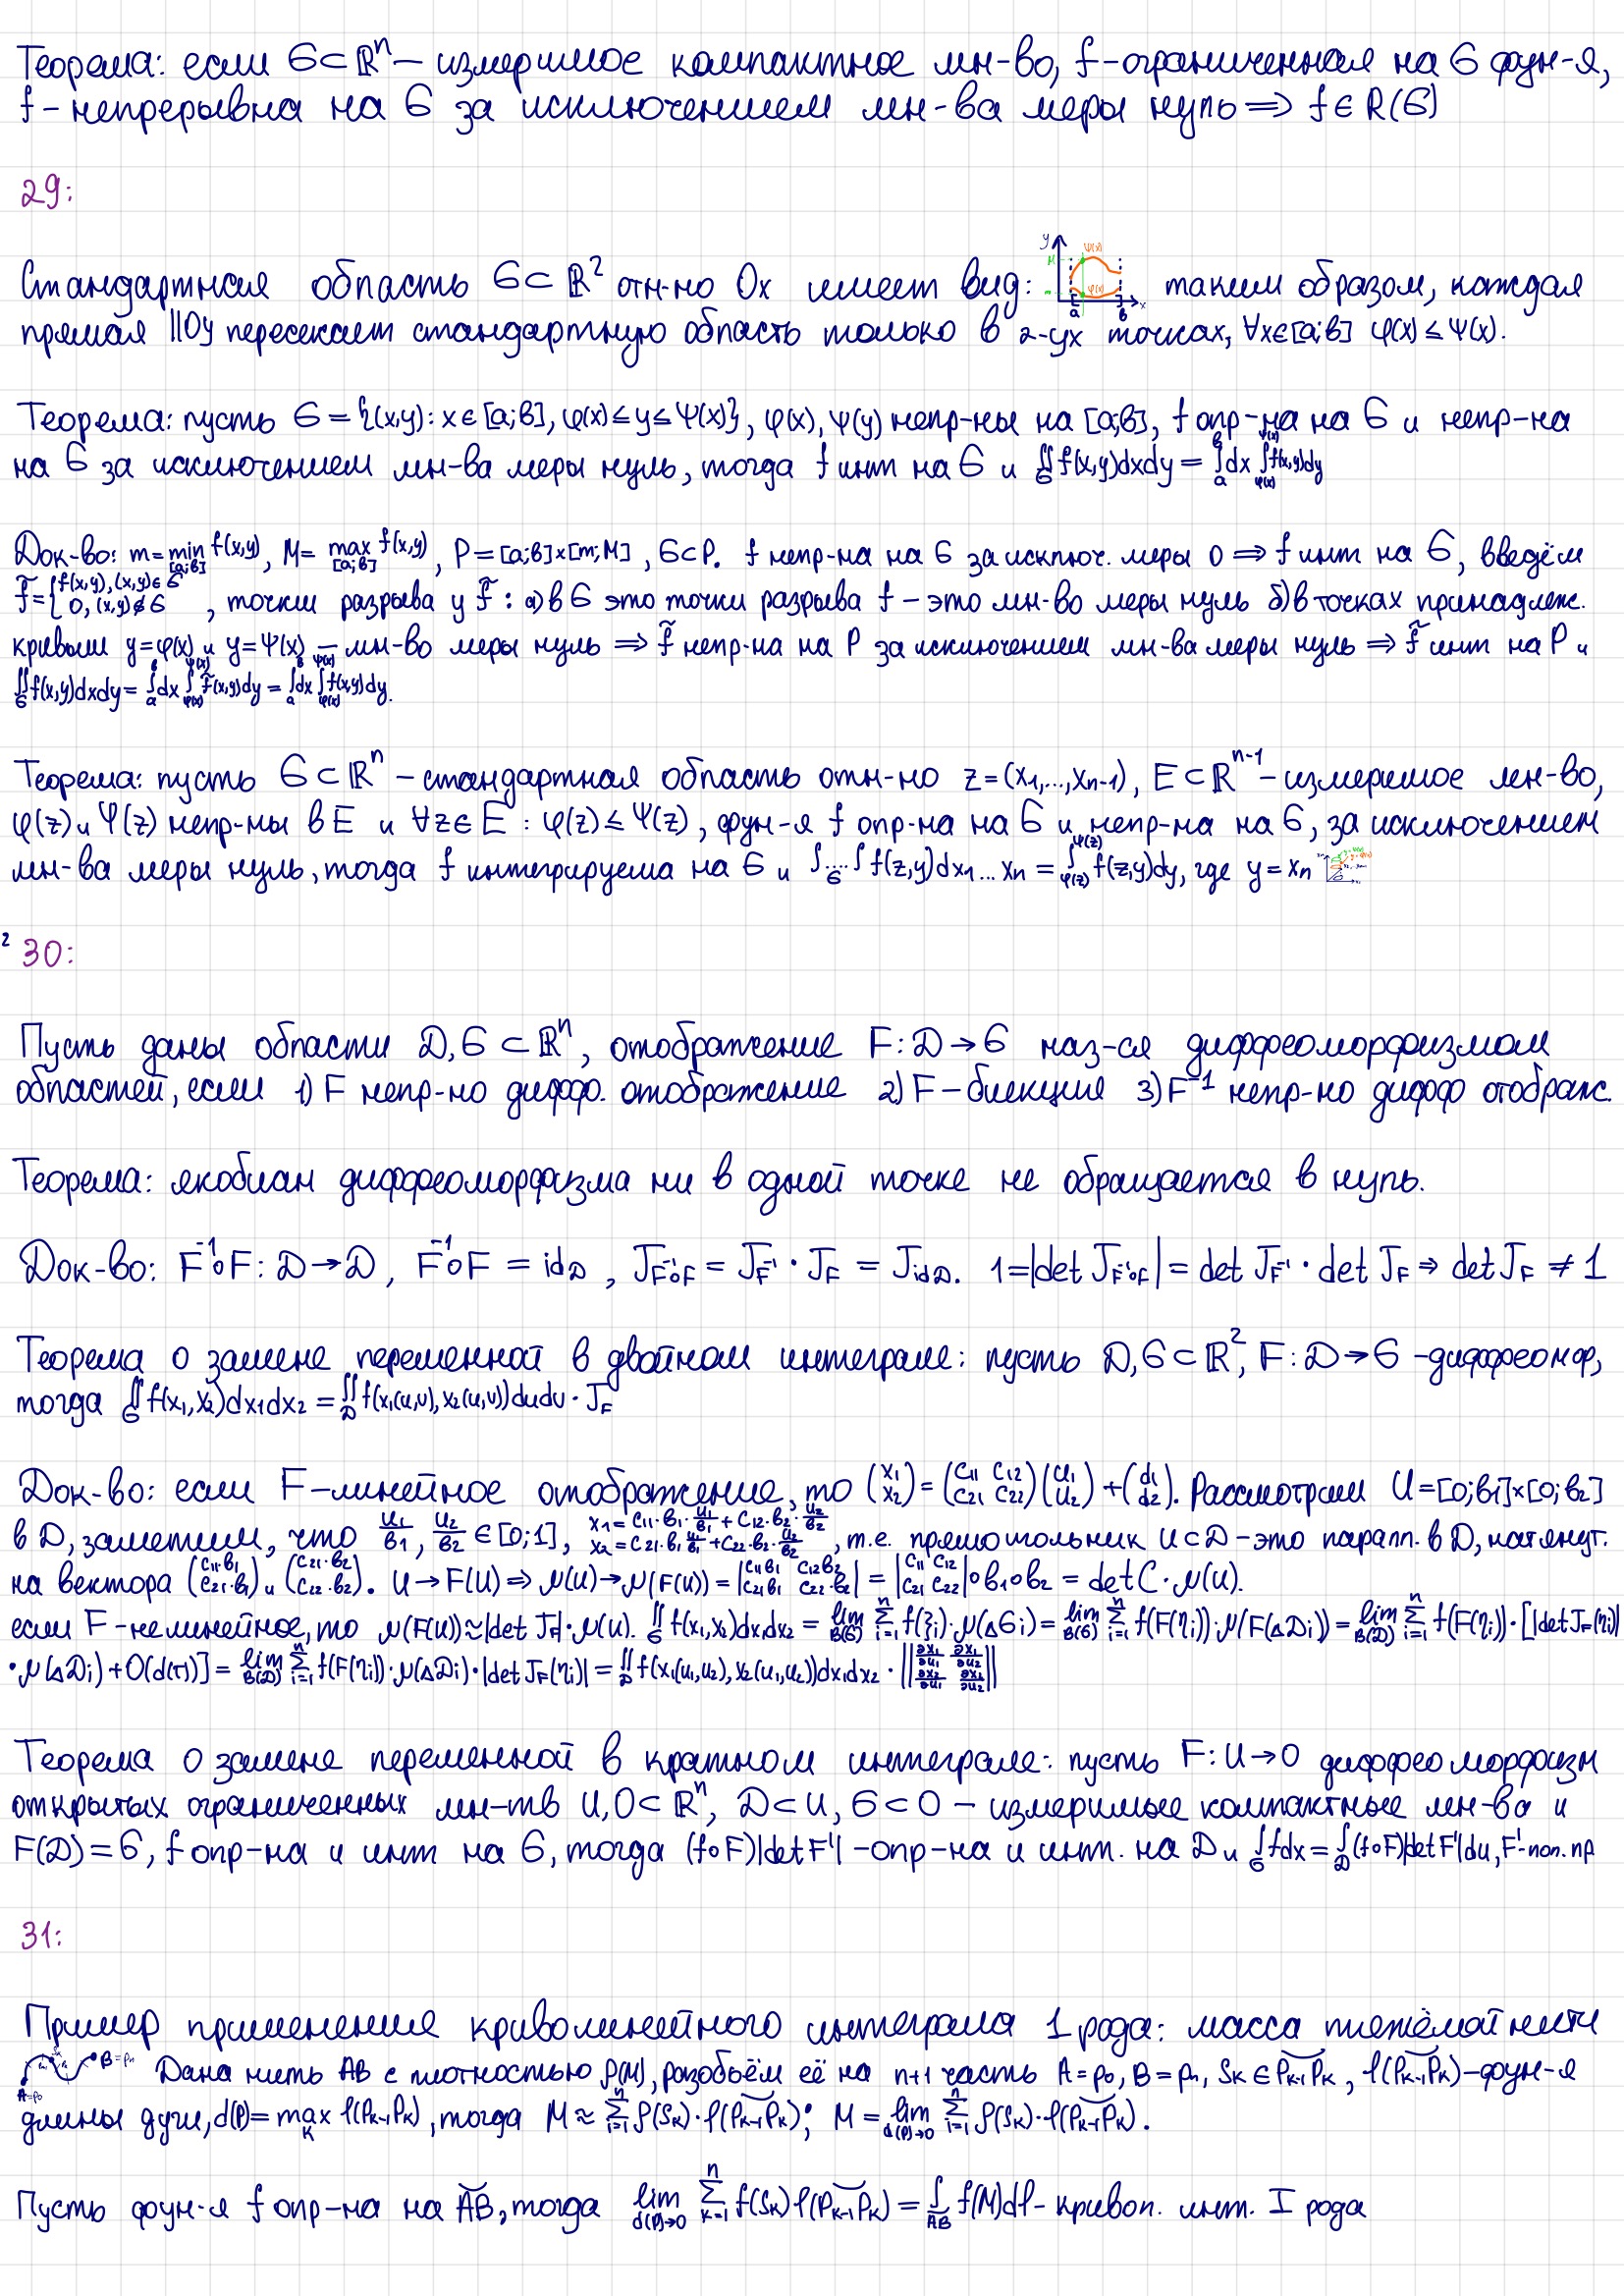 Теорема: если G⊂ℝⁿ – измеримое компактное мн-во, f-ограниченная на G фун-я,
f – непрерывна на G за исключением мн-ва меры нуль ⟹ f∈R(G)
29:
Стандартная область G⊂ℝ² отн-но Ox имеет вид: y M m ψ(x) φ(x) a b x таким образом, каждая
прямая ||Oy пересекает стандартную область только в 2-ух точках, ∀x∈[a;b] φ(x)≤ψ(x).
Теорема: пусть G={(x,y): x∈[a;b], φ(x)≤y≤ψ(x)}, φ(x), ψ(y) непр-ны на [a;b], f опр-на на G и непр-на
на G за исключением мн-ва меры нуль, тогда f инт на G и ∬_G f(x,y)dxdy = ∫_a^b dx ∫_φ(x)^ψ(x) f(x,y)dy
Док-во: m=min_[a;b] f(x,y), M=max_[a;b] f(x,y), P=[a;b]×[m;M], G⊂P. f непр-на на G за исключ. меры 0 ⟹ f инт на G, введём
f̃={f(x,y), (x,y)∈G; 0, (x,y)∉G, точки разрыва у f̃: а) в G это точки разрыва f – это мн-во меры нуль б) в точках принадлеж.
кривым y=φ(x) и y=ψ(x) – мн-во меры нуль ⟹ f̃ непр-на на P за исключением мн-ва меры нуль ⟹ f̃ инт на P и
∬_G f(x,y)dxdy = ∫_a^b dx ∫_φ(x)^ψ(x) f̃(x,y)dy = ∫_a^b dx ∫_φ(x)^ψ(x) f(x,y)dy.
Теорема: пусть G⊂ℝⁿ – стандартная область отн-но z=(x₁,...,xₙ₋₁), E⊂ℝⁿ⁻¹ – измеримое мн-во,
φ(z) и ψ(z) непр-ны в E и ∀z∈E: φ(z)≤ψ(z), фун-я f опр-на на G и непр-на на G, за исключением
мн-ва меры нуль, тогда f интегрируема на G и ∫...∫_G f(z,y)dx₁...xₙ = ∫_φ(z)^ψ(z) f(z,y)dy, где y=xₙ
2 30:
Пусть даны области D,G ⊂ ℝⁿ, отображение F: D→G наз-ся диффеоморфизмом
областей, если 1) F непр-но дифф. отображение 2) F – биекция 3) F⁻¹ непр-но дифф отображ.
Теорема: якобиан диффеоморфизма ни в одной точке не обращается в нуль.
Док-во: F⁻¹∘F: D→D, F⁻¹∘F = id_D, J_{F⁻¹∘F} = J_{F⁻¹} · J_F = J_{id_D}. 1=|det J_{F⁻¹∘F}| = det J_{F⁻¹} · det J_F ⇒ det J_F ≠ 1
Теорема о замене переменной в двойном интеграле: пусть D,G⊂ℝ², F: D→G -диффеомор,
тогда ∬_G f(x₁,x₂)dx₁dx₂ = ∬_D f(x₁(u,v), x₂(u,v))dudv · J_F
Док-во: если F-линейное отображение, то (x₁ x₂) = (c₁₁ c₁₂ c₂₁ c₂₂)(u₁ u₂) + (d₁ d₂). Рассмотрим U=[0;b₁]×[0;b₂]
в D, заметим, что u₁/b₁, u₂/b₂ ∈[0;1], x₁=c₁₁·b₁·u₁/b₁ + c₁₂·b₂·u₂/b₂ x₂=c₂₁·b₁·u₁/b₁ + c₂₂·b₂·u₂/b₂, т.е. прямоугольник U⊂D – это паралл. в D, натянут.
на вектора (c₁₁·b₁ c₂₁·b₁) и (c₂₁·b₂ c₂₂·b₂). U→F(U) ⟹ μ(U)→μ(F(U)) = |c₁₁b₁ c₁₂b₂ c₂₁b₁ c₂₂·b₂| = |c₁₁ c₁₂ c₂₁ c₂₂|∘b₁∘b₂ = det C·μ(U).
если F-нелинейное, то μ(F(U))≈|det J_F|·μ(U). ∬_G f(x₁,x₂)dx₁dx₂ = lim_B(G) Σ_{i=1}^n f(ξᵢ)·μ(ΔGᵢ) = lim_B(G) Σ_{i=1}^n f(F(ηᵢ))·μ(F(ΔDᵢ)) = lim_B(D) Σ_{i=1}^n f(F(ηᵢ))·[|det J_F(ηᵢ)|
·μ(ΔDᵢ)+O(d(T))] = lim_B(D) Σ_{i=1}^n f(F(ηᵢ))·μ(ΔDᵢ)·|det J_F(ηᵢ)| = ∬_D f(x₁(u₁,u₂), x₂(u₁,u₂))dx₁dx₂ · ||∂x₁/∂u₁ ∂x₁/∂u₂ ∂x₂/∂u₁ ∂x₂/∂u₂||
Теорема о замене переменной в кратном интеграле: пусть F: U→O диффеоморфизм
открытых ограниченных мн-тв U,O⊂ℝⁿ, D⊂U, G⊂O – измеримые компактные мн-ва и
F(D)=G, f опр-на и инт на G, тогда (f∘F)|det F'| -опр-на и инт. на D и ∫_G fdx = ∫_D (f∘F)|det F'|du, F'-пол. пр
31:
Пример применения криволинейного интеграла 1 рода: масса тяжёлой нити
A=p₀ B=pₙ Дана нить AB с плотностью ρ(M), разобьём её на n+1 часть A=p₀, B=pₙ, Sₖ∈Pₖ₋₁Pₖ, l(Pₖ₋₁Pₖ)-фун-я
длины дуги, d(P)=max_k l(Pₖ₋₁Pₖ), тогда M≈Σ_{i=1}^n ρ(Sₖ)·l(Pₖ₋₁Pₖ); M=lim_{d(P)→0} Σ_{i=1}^n ρ(Sₖ)·l(Pₖ₋₁Pₖ).
Пусть фун-я f опр-на на AB, тогда lim_{d(P)→0} Σ_{k=1}^n f(Sₖ)l(Pₖ₋₁Pₖ) = ∫_AB f(M)dl – кривол. инт. I рода